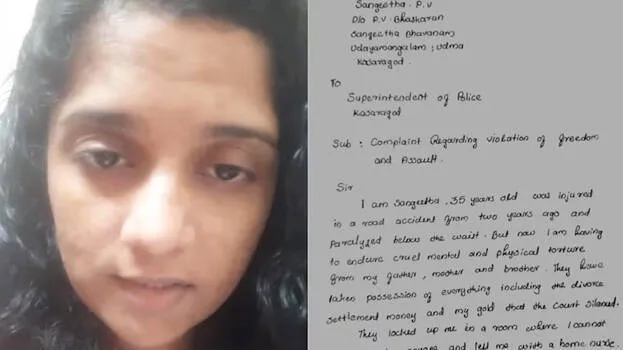 Sangeetha. P.V
D/o P.V. Bhaskaran
Sangeetha Bhavanam
Udayamangalam ; Udma
Kasaragod.
To
Superintendent of Police
Kasaragod
Sub : Complaint Regarding violation of freedom
and Assault.
Sir
I am Sangeetha, 35 years old was injured
in a road accident from two years ago and
Paralyzed below the waist. But now I am having
to endure cruel mental and physical torture
from my father, mother and brother. They have
taken possession of everything including the divorce
settlement money and my gold that the Court
They locked up me in a room where I cannot
and left me with a home nurse.